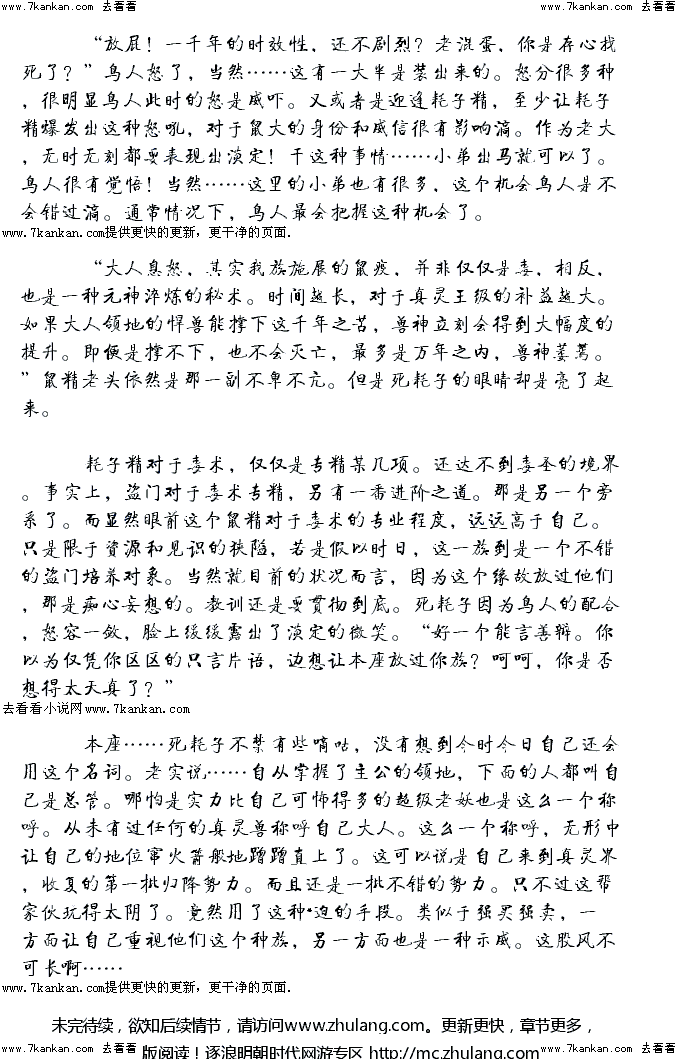 www.7kankan.com 去看看 www.7kankan.com 去看看
“放屁！一千年的时效性，还不剧烈？老混蛋，你是存心找
死了？”鸟人怒了，当然……这有一大半是装出来的。怒分很多种
，很明显鸟人此时的怒是威吓。又或者是迎逢耗子精，至少让耗子
精爆发出这种怒吼，对于鼠大的身份和威信很有影响滴。作为老大
，无时无刻都要表现出淡定！干这种事情……小弟出马就可以了。
鸟人很有觉悟！当然……这里的小弟也有很多，这个机会鸟人是不
会错过滴。通常情况下，鸟人最会把握这种机会了。
www.7kankan.com提供更快的更新，更干净的页面.
“大人息怒，其实我族施展的鼠疫，并非仅仅是毒，相反，
也是一种元神淬炼的秘术。时间越长，对于真灵王级的补益越大。
如果大人领地的悍兽能撑下这千年之苦，兽神立刻会得到大幅度的
提升。即便是撑不下，也不会灭亡，最多是万年之内，兽神萎蔫。
”鼠精老头依然是那一副不卑不亢。但是死耗子的眼睛却是亮了起
来。
耗子精对于毒术，仅仅是专精某几项。还达不到毒圣的境界
。事实上，盗门对于毒术专精，另有一番进阶之道。那是另一个旁
系了。而显然眼前这个鼠精对于毒术的专业程度，远远高于自己。
只是限于资源和见识的狭隘，若是假以时日，这一族到是一个不错
的盗门培养对象。当然就目前的状况而言，因为这个缘故放过他们
，那是痴心妄想的。教训还是要贯彻到底。死耗子因为鸟人的配合
，怒容一敛，脸上缓缓露出了淡定的微笑。“好一个能言善辩。你
以为仅凭你区区的只言片语，边想让本座放过你族？呵呵，你是否
想得太天真了？”
去看看小说网www.7kankan.com
本座……死耗子不禁有些嘀咕，没有想到今时今日自己还会
用这个名词。老实说……自从掌握了主公的领地，下面的人都叫自
己是总管。哪怕是实力比自己可怖得多的超级老妖也是这么一个称
呼。从未有过任何的真灵兽称呼自己大人。这么一个称呼，无形中
让自己的地位窜火箭般地蹭蹭直上了。这可以说是自己来到真灵界
，收复的第一批归降势力。而且还是一批不错的势力。只不过这帮
家伙玩得太阴了。竟然用了这种*迫的手段。类似于强买强卖，一
方面让自己重视他们这个种族，另一方面也是一种示威。这股风不
可长啊……
www.7kankan.com提供更快的更新，更干净的页面.
未完待续，欲知后续情节，请访问www.zhulang.com。更新更快，章节更多，
版阅读！逐浪明朝时代网游专区 http://mc.zhulang.com
www.7kankan.com 去看看 www.7kankan.com 去看看